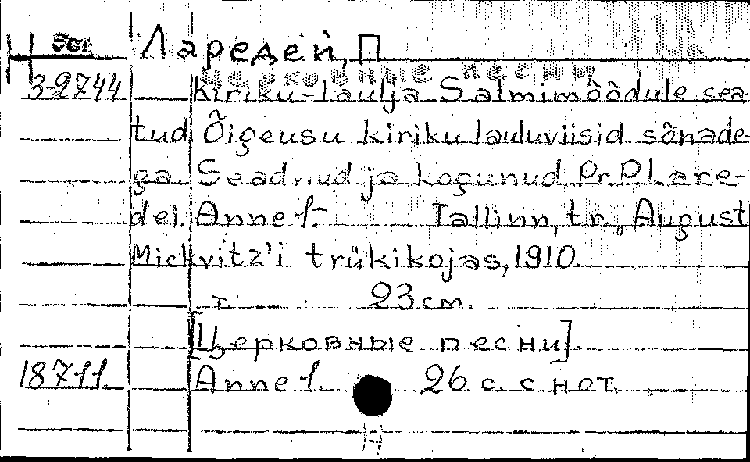 Эст Ларедей, П
Церковные песни
3-2744 Kiriku-laulja Salmimõõdule sea-
tud Õigeusu kiriku lauluviisid sõnade-
ga Seadnud ja kogunud Pr. P. Lare-
del. Anne 1.- Tallinn, tr., August
Mickvitz'i trükikojas, 1910.
т. 23 см.
[Церковные песни].
18711. Anne 1. 26 с. с нот.